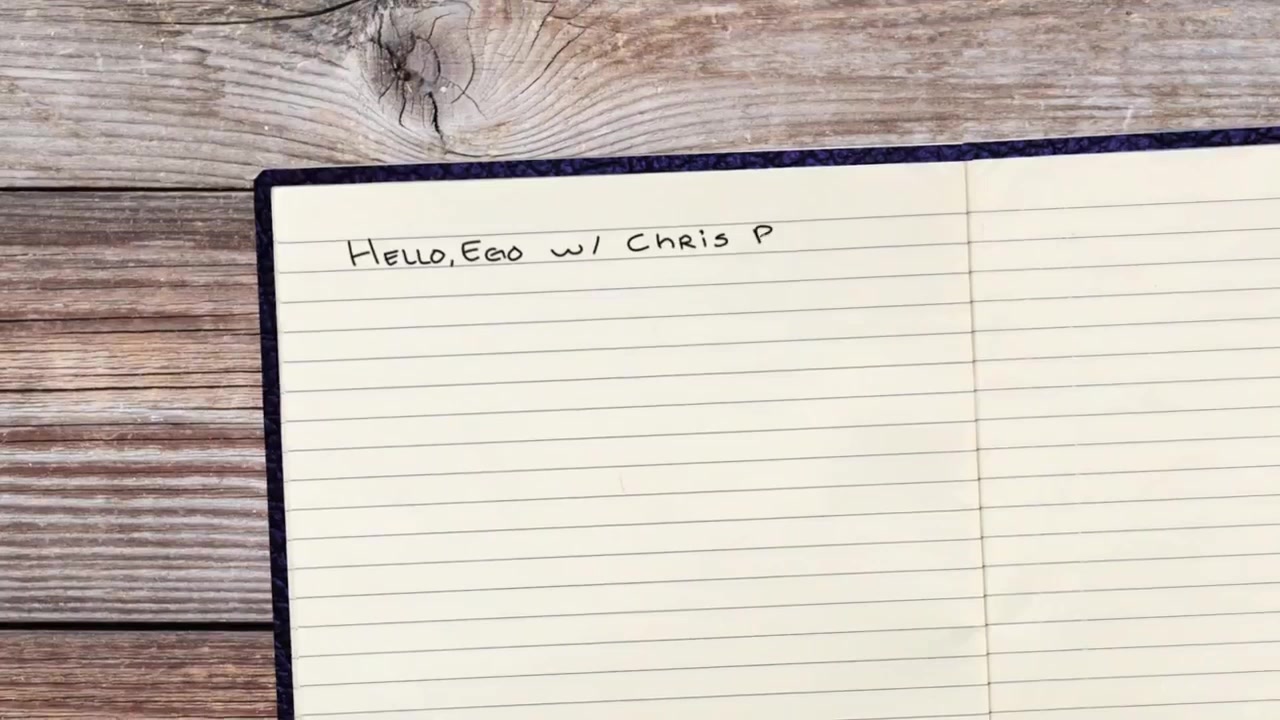 Hello, Ego w/ Chris P